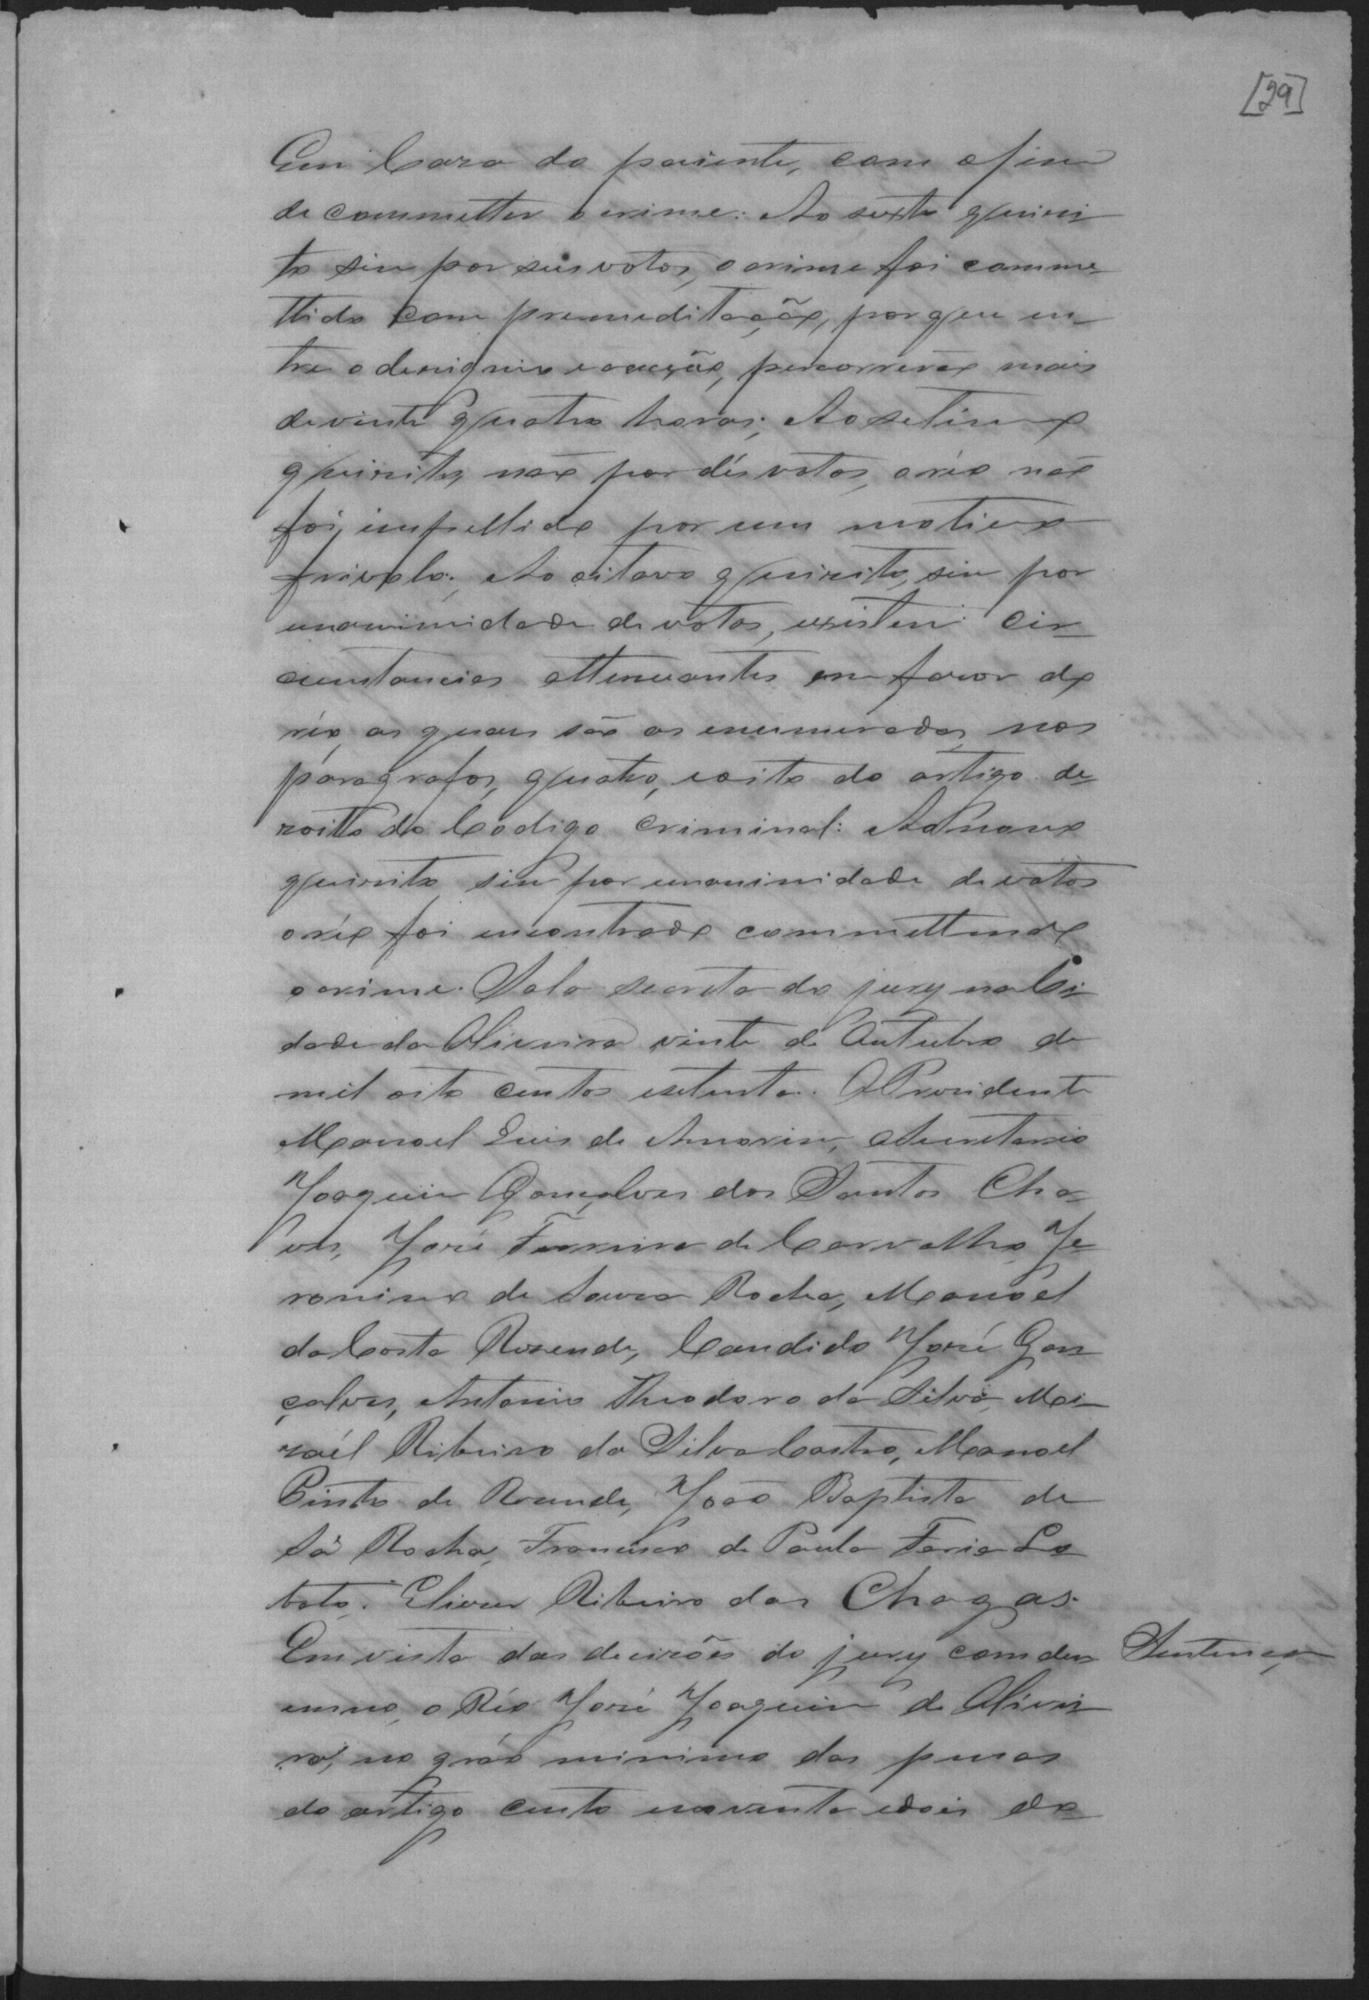 [29]
Em Casa do paciente, com o fim
de committer o crime: Ao sexto quisi-
to sim por seis votos, o crime foi comme-
ttido com premeditação, porque en-
tre o designio e a acção, percorrerão mais
de vinte quatro horas; Ao setimo
quisito, não por dés votos, o réo não
foi impellido por um motivo
frivolo; Ao oitavo quisito, sim por
unanimidade de votos, existem cir-
cunstancias attenuantes em favor do
réo, as quaes são as enumeradas nos
paragrafos, quatro, e oito do artigo de-
zoitto do Codigo Criminal: Ao nono
quisito sim por unanimidade de votos
o réo foi encontrado committendo
o crime. Sala secreta do jury na Ci-
dade da Oliveira vinte de Outubro de
mil oito centos e setenta. O Presidente
Manoel Luis de Amorim, o Secretario
Joaquim Gonçalves dos Santos Cha-
ves, José Ferreira de Carvalho, Je-
ronimo de Souza Rocha, Manoel
da Costa Rezende, Candido José Gon-
çalves, Antonio Theodoro da Silva, Mei-
zaél Ribeiro da Silva Castro, Manoel
Pinto de Rezende, João Baptista de
Sá Rocha, Francisco de Paula Faria Lo-
bato. Eliseu Ribeiro das Chagas.
Em vista das decizões do jury comdem- Sentença
emno, o Réo José Joaquim de Olivei-
ra, no gráo minimo das penas
do artigo cento e noventa e dois do